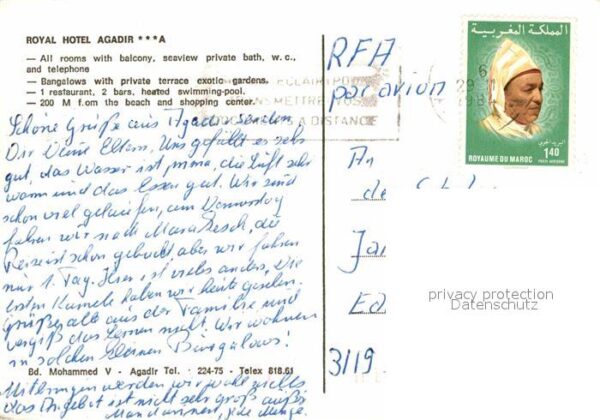 ROYAL HOTEL AGADIR ***A
— All rooms with balcony, seaview private bath, w.c.,
and telephone
— Bangalows with private terrace exotic gardens.
— 1 restaurant, 2 bars, heated swimming-pool.
— 200 M f.om the beach and shopping center.
Schöne Grüße aus Agadir senden
Dir Deine Eltern. Uns gefällt es sehr
gut, das Wasser ist prima, die Luft sehr
warm und das Essen gut. Wir sind
schon viel gelaufen, am Donnerstag
fahren wir nach Marakesch, die
Reise ist schon gebucht, aber wir fahren
nur 1. Tag. Hier ist vieles anders, die
ersten Kamele haben wir heute gesehen.
Grüße alle aus der Familie und
vergiß das Lernen nicht. Wir wohnen
in solchen kleinen Bungalows!
Bd. Mohammed V - Agadir Tel. : 224-75 - Telex 818.61
Mitbringen werden wir wohl nichts
das Angebot ist nicht sehr groß außer
Mandarinen, jede Menge.
RFA
par avion
المملكة المغربية
البريد الجوي
1,40
ROYAUME DU MAROC
POSTE AERIENNE
A DISTANCE
An
3119
privacy protection
Datenschutz